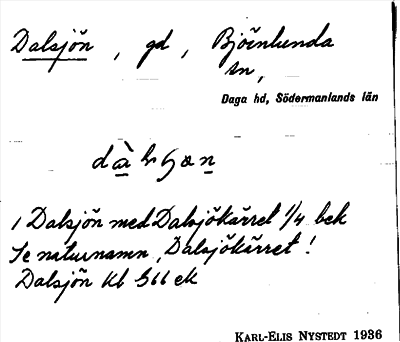 Dalsjön, gd, Björnlunda
sn,
Daga hd, Södermanlands län
1 Dalsjön med Dalsjökärret 1/4 bek
Se naturnamn, Dalsjökärret!
Dalsjön Kb 566 ek
KARL-ELIS NYSTEDT 1936